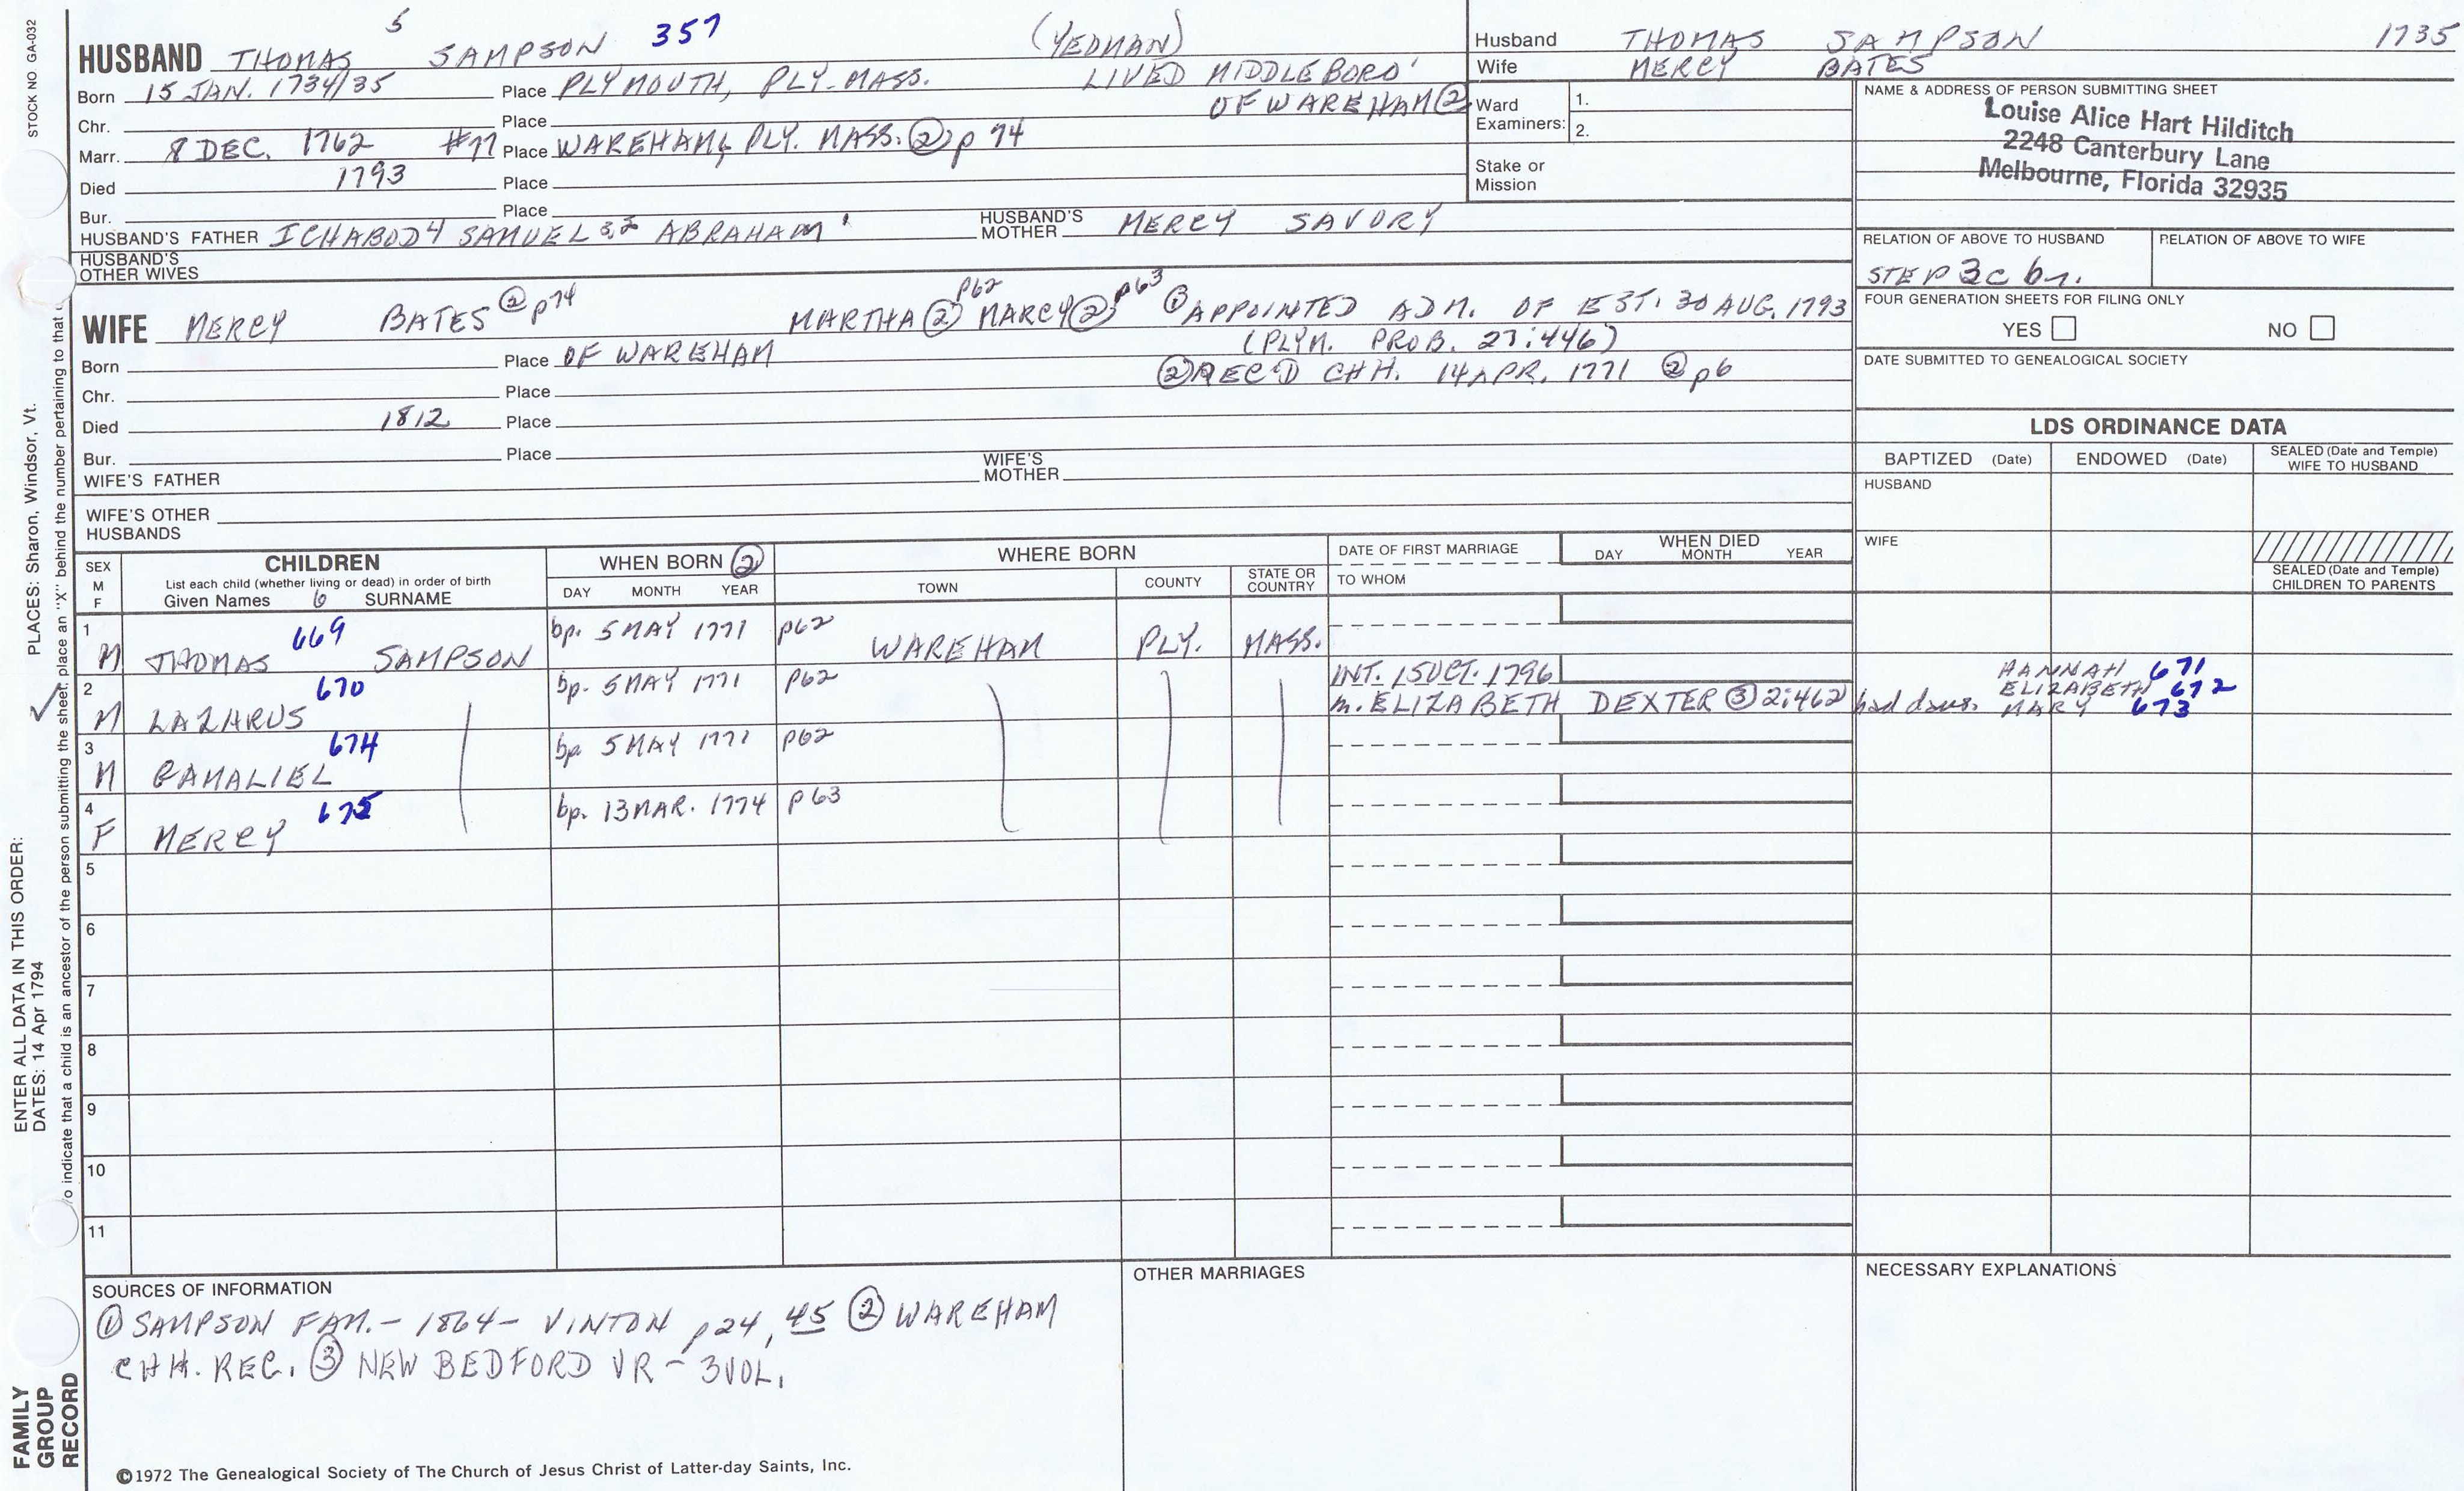 STOCK NO. GA-032
HUSBAND THOMAS 5 SAMPSON 357 (YEOMAN)
Born 15 JAN. 1734/35 Place PLYMOUTH, PLY. MASS. LIVED MIDDLEBORO'
Chr. Place OF WAREHAM ②
Marr. 8 DEC. 1762 #77 Place WAREHAM, PLY. MASS. ② p 74
Died 1793 Place
Bur. Place
HUSBAND'S FATHER ICHABOD 4 SAMUEL 3,2 ABRAHAM 1 HUSBAND'S MOTHER MERCY SAVORY
HUSBAND'S OTHER WIVES
Husband THOMAS SAMPSON 1735
Wife MERCY BATES
Ward Examiners: 1.
2.
Stake or Mission
NAME & ADDRESS OF PERSON SUBMITTING SHEET
Louise Alice Hart Hilditch
2248 Canterbury Lane
Melbourne, Florida 32935
RELATION OF ABOVE TO HUSBAND RELATION OF ABOVE TO WIFE
STEP 3c 6r.
FOUR GENERATION SHEETS FOR FILING ONLY
YES NO
DATE SUBMITTED TO GENEALOGICAL SOCIETY
WIFE MERCY BATES ② p74 MARTHA ② p62 MARCY ② p63 ① APPOINTED ADM. OF EST. 30 AUG. 1793
(PLYM. PROB. 27:446)
Born Place OF WAREHAM
② REC'D CHH. 14 APR. 1771 ② p6
Chr. Place
Died 1812 Place
Bur. Place
WIFE'S FATHER WIFE'S MOTHER
WIFE'S OTHER HUSBANDS
LDS ORDINANCE DATA
BAPTIZED (Date) ENDOWED (Date) SEALED (Date and Temple) WIFE TO HUSBAND
HUSBAND
WIFE
SEALED (Date and Temple) CHILDREN TO PARENTS
SEX M F CHILDREN List each child (whether living or dead) in order of birth Given Names 6 SURNAME
WHEN BORN ② DAY MONTH YEAR
WHERE BORN TOWN COUNTY STATE OR COUNTRY
DATE OF FIRST MARRIAGE TO WHOM
WHEN DIED DAY MONTH YEAR
1 M THOMAS 669 SAMPSON bp. 5 MAY 1771 p62 WAREHAM PLY. MASS.
2 M LAZARUS 670 bp. 5 MAY 1771 p62 INT. 15 OCT. 1796
m. ELIZABETH DEXTER ③ 2:462 had daus. HANNAH 671
ELIZABETH 672
MARY 673
3 M GAMALIEL 674 bp 5 MAY 1771 p62
4 F MERCY 675 bp. 13 MAR. 1774 p63
5
6
7
8
9
10
11
SOURCES OF INFORMATION
① SAMPSON FAM. - 1864 - VINTON p24, 45 ② WAREHAM
CHH. REC. ③ NEW BEDFORD VR - 3 VOL.
OTHER MARRIAGES
NECESSARY EXPLANATIONS
©1972 The Genealogical Society of The Church of Jesus Christ of Latter-day Saints, Inc.
ENTER ALL DATA IN THIS ORDER:
DATES: 14 Apr 1794
PLACES: Sharon, Windsor, Vt.
o indicate that a child is an ancestor of the person submitting the sheet, place an "X" behind the number pertaining to that
FAMILY GROUP RECORD